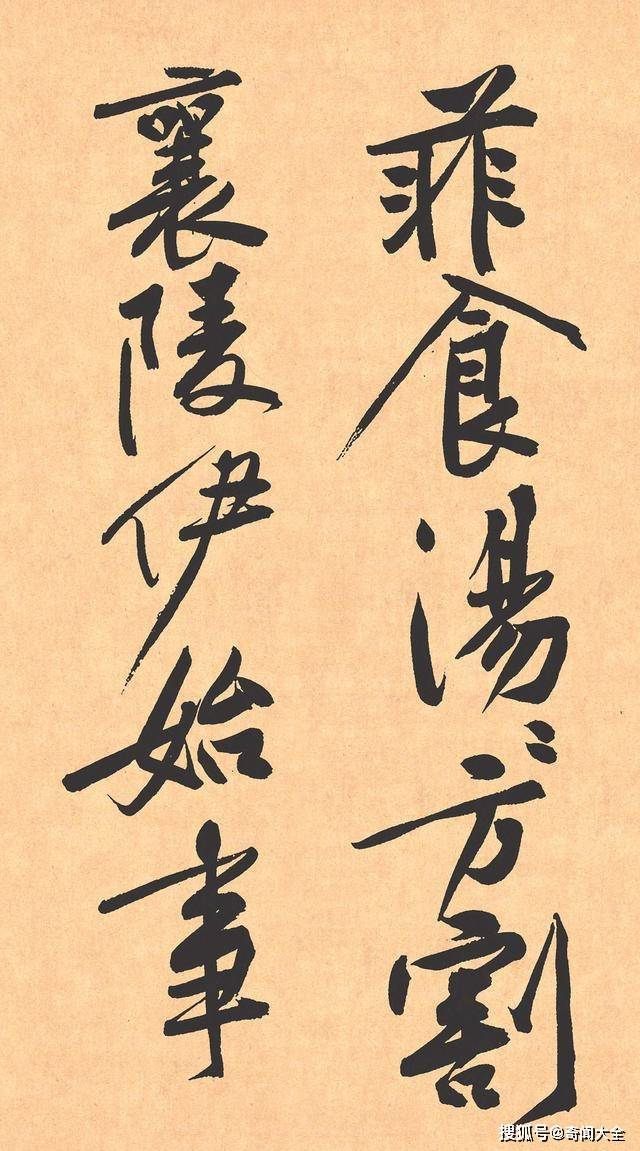 菲食湯〻方割
襄陵伊始事
搜狐号@奇闻大全